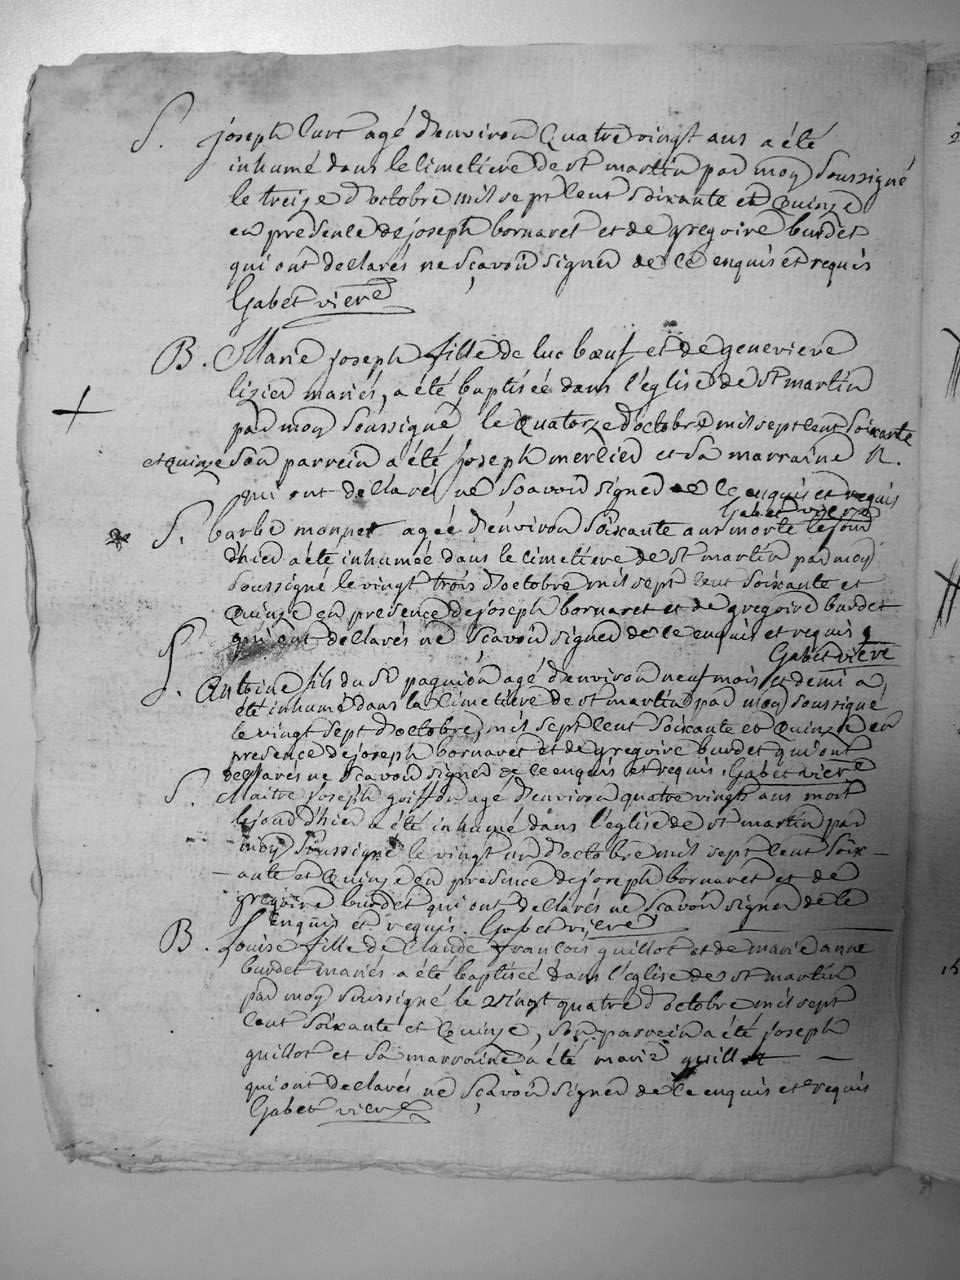 S. joseph Curt agé d'environ Quatre vingt ans a été
inhumé dans le cimetiere de st martin par moy soussigné
le treize d'octobre mil sept cent soixante et Quinze
en presence de joseph bornaret et de gregoire burdet
qui ont declarés ne sçavoir signer de ce enquis et requis
Gabet vicre
B. Marie joseph fille de luc bœuf et de genevieve
lizier mariés, a été baptisée dans l'église de st martin
par moy soussigné le Quatorze d'octobre mil sept cent soixante
et Quinze son parrein a été joseph mercier et sa marraine R.
qui ont declaré ne sçavoir signer de ce enquis et requis
Gabet vicre
S. barbe monnet agée d'environ soixante ans morte le jour
d'hier a été inhumée dans le cimetiere de st martin par moy
soussigné le vingt trois d'octobre mil sept cent soixante et
Quinze en presence de joseph bornaret et de gregoire burdet
qui ont declarés ne sçavoir signer de ce enquis et requis
Gabet vicre
S. Antoine fils du Sr paquion agé d'environ neuf mois et demi a
été inhumé dans la cimetiere de st martin par moy soussigné
le vingt sept d'octobre, mil sept cent soixante et Quinze en
presence de joseph bornaret et de gregoire burdet qui ont
declarés ne sçavoir signer de ce enquis et requis. Gabet vicre
S. Maitre joseph goiffon agé d'environ quatre vingts ans mort
le jour d'hier a été inhumé dans l'église de st martin par
moy soussigné le vingt un d'octobre mil sept cent soix-
-ante et Quinze en presence de joseph bornaret et de
gregoire burdet qui ont declarés ne sçavoir signer de ce
enquis et requis. Gabet vicre
B. Louise fille de Claude françois guillot et de marie anne
burdet mariés a été baptisée dans l'église de st martin
par moy soussigné le vingt quatre d'octobre mil sept
cent soixante et Quinze, son parrein a été joseph
guillot et sa marraine a été marie guillot
qui ont declarés ne sçavoir signer de ce enquis et requis
Gabet vicre